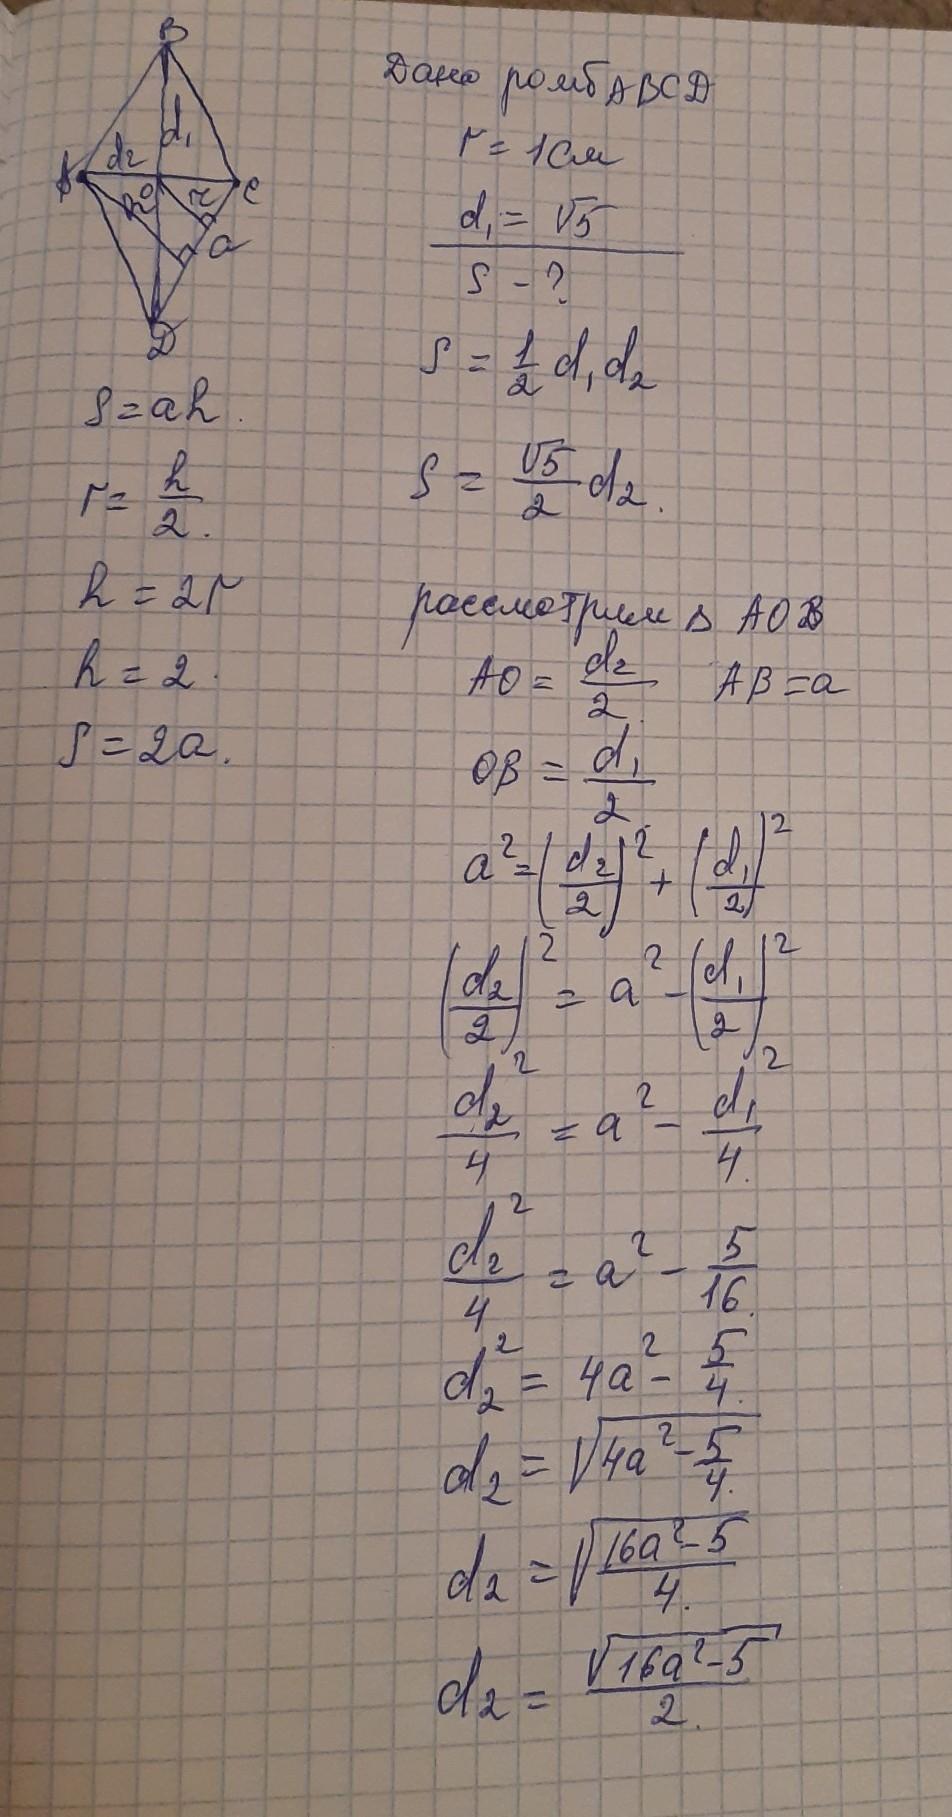 B
d₁
d₂
A
O
C
h
r
a
D
S = ah.
r = h/2.
h = 2r
h = 2.
S = 2a.
Дано ромб ABCD
r = 1 см
d₁ = √5
S - ?
S = 1/2 d₁ d₂
S = √5/2 d₂.
рассмотрим Δ AOB
AO = d₂/2. AB = a
OB = d₁/2
a² = (d₂/2)² + (d₁/2)²
(d₂/2)² = a² - (d₁/2)²
d₂²/4 = a² - d₁²/4.
d₂²/4 = a² - 5/16.
d₂² = 4a² - 5/4.
d₂ = √(4a² - 5/4.)
d₂ = √((16a² - 5)/4.)
d₂ = √(16a² - 5)/2.